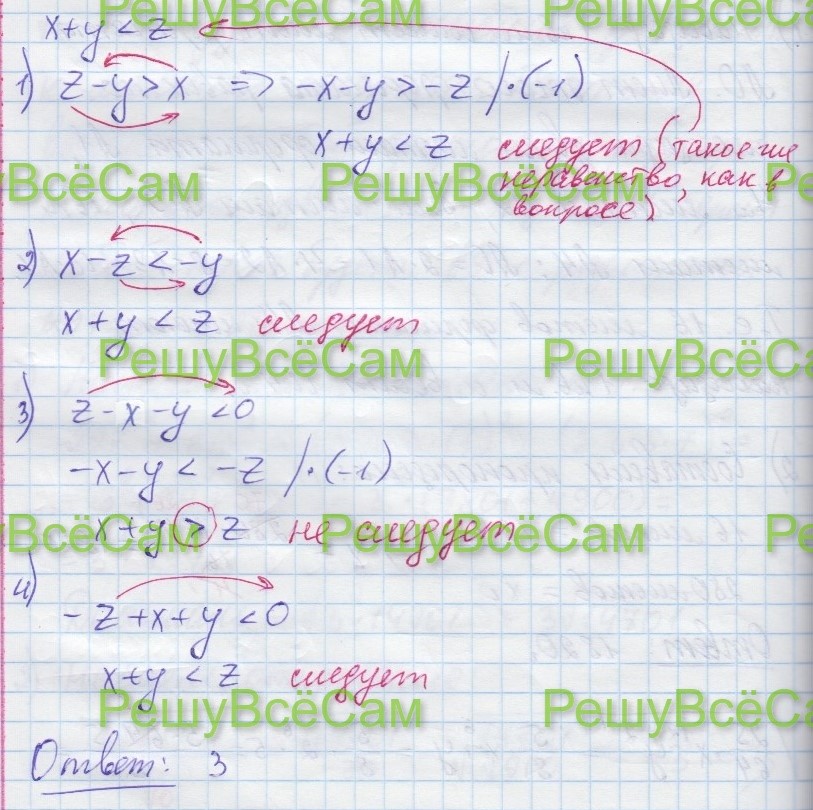 РешуВсёСам РешуВсёСам
x+y<z
1) z-y>x => -x-y>-z /·(-1)
x+y<z следует (такое же
РешуВсёСам РешуВсёСам Ре
неравенство, как в
вопросе)
2) x-z<-y
x+y<z следует
РешуВсёСам РешуВсёСам
3) z-x-y<0
-x-y<-z /·(-1)
x+y>z не следует
РешуВсёСам РешуВсёСам Ре
4)
-z+x+y<0
x+y<z следует
РешуВсёСам РешуВсёСам
Ответ: 3